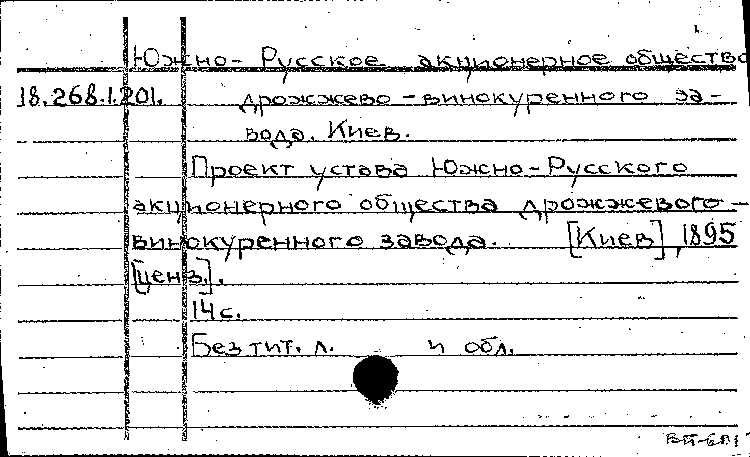 Южно-Русское акционерное общество
18.268.1.201. дрожжево-винокуренного за-
вода. Киев.
Проект устава Южно-Русского
акционерного общества дрожжевого-
винокуренного завода. [Киев], 1895
[ценз.].
14 с.
Без тит. л. и обл.